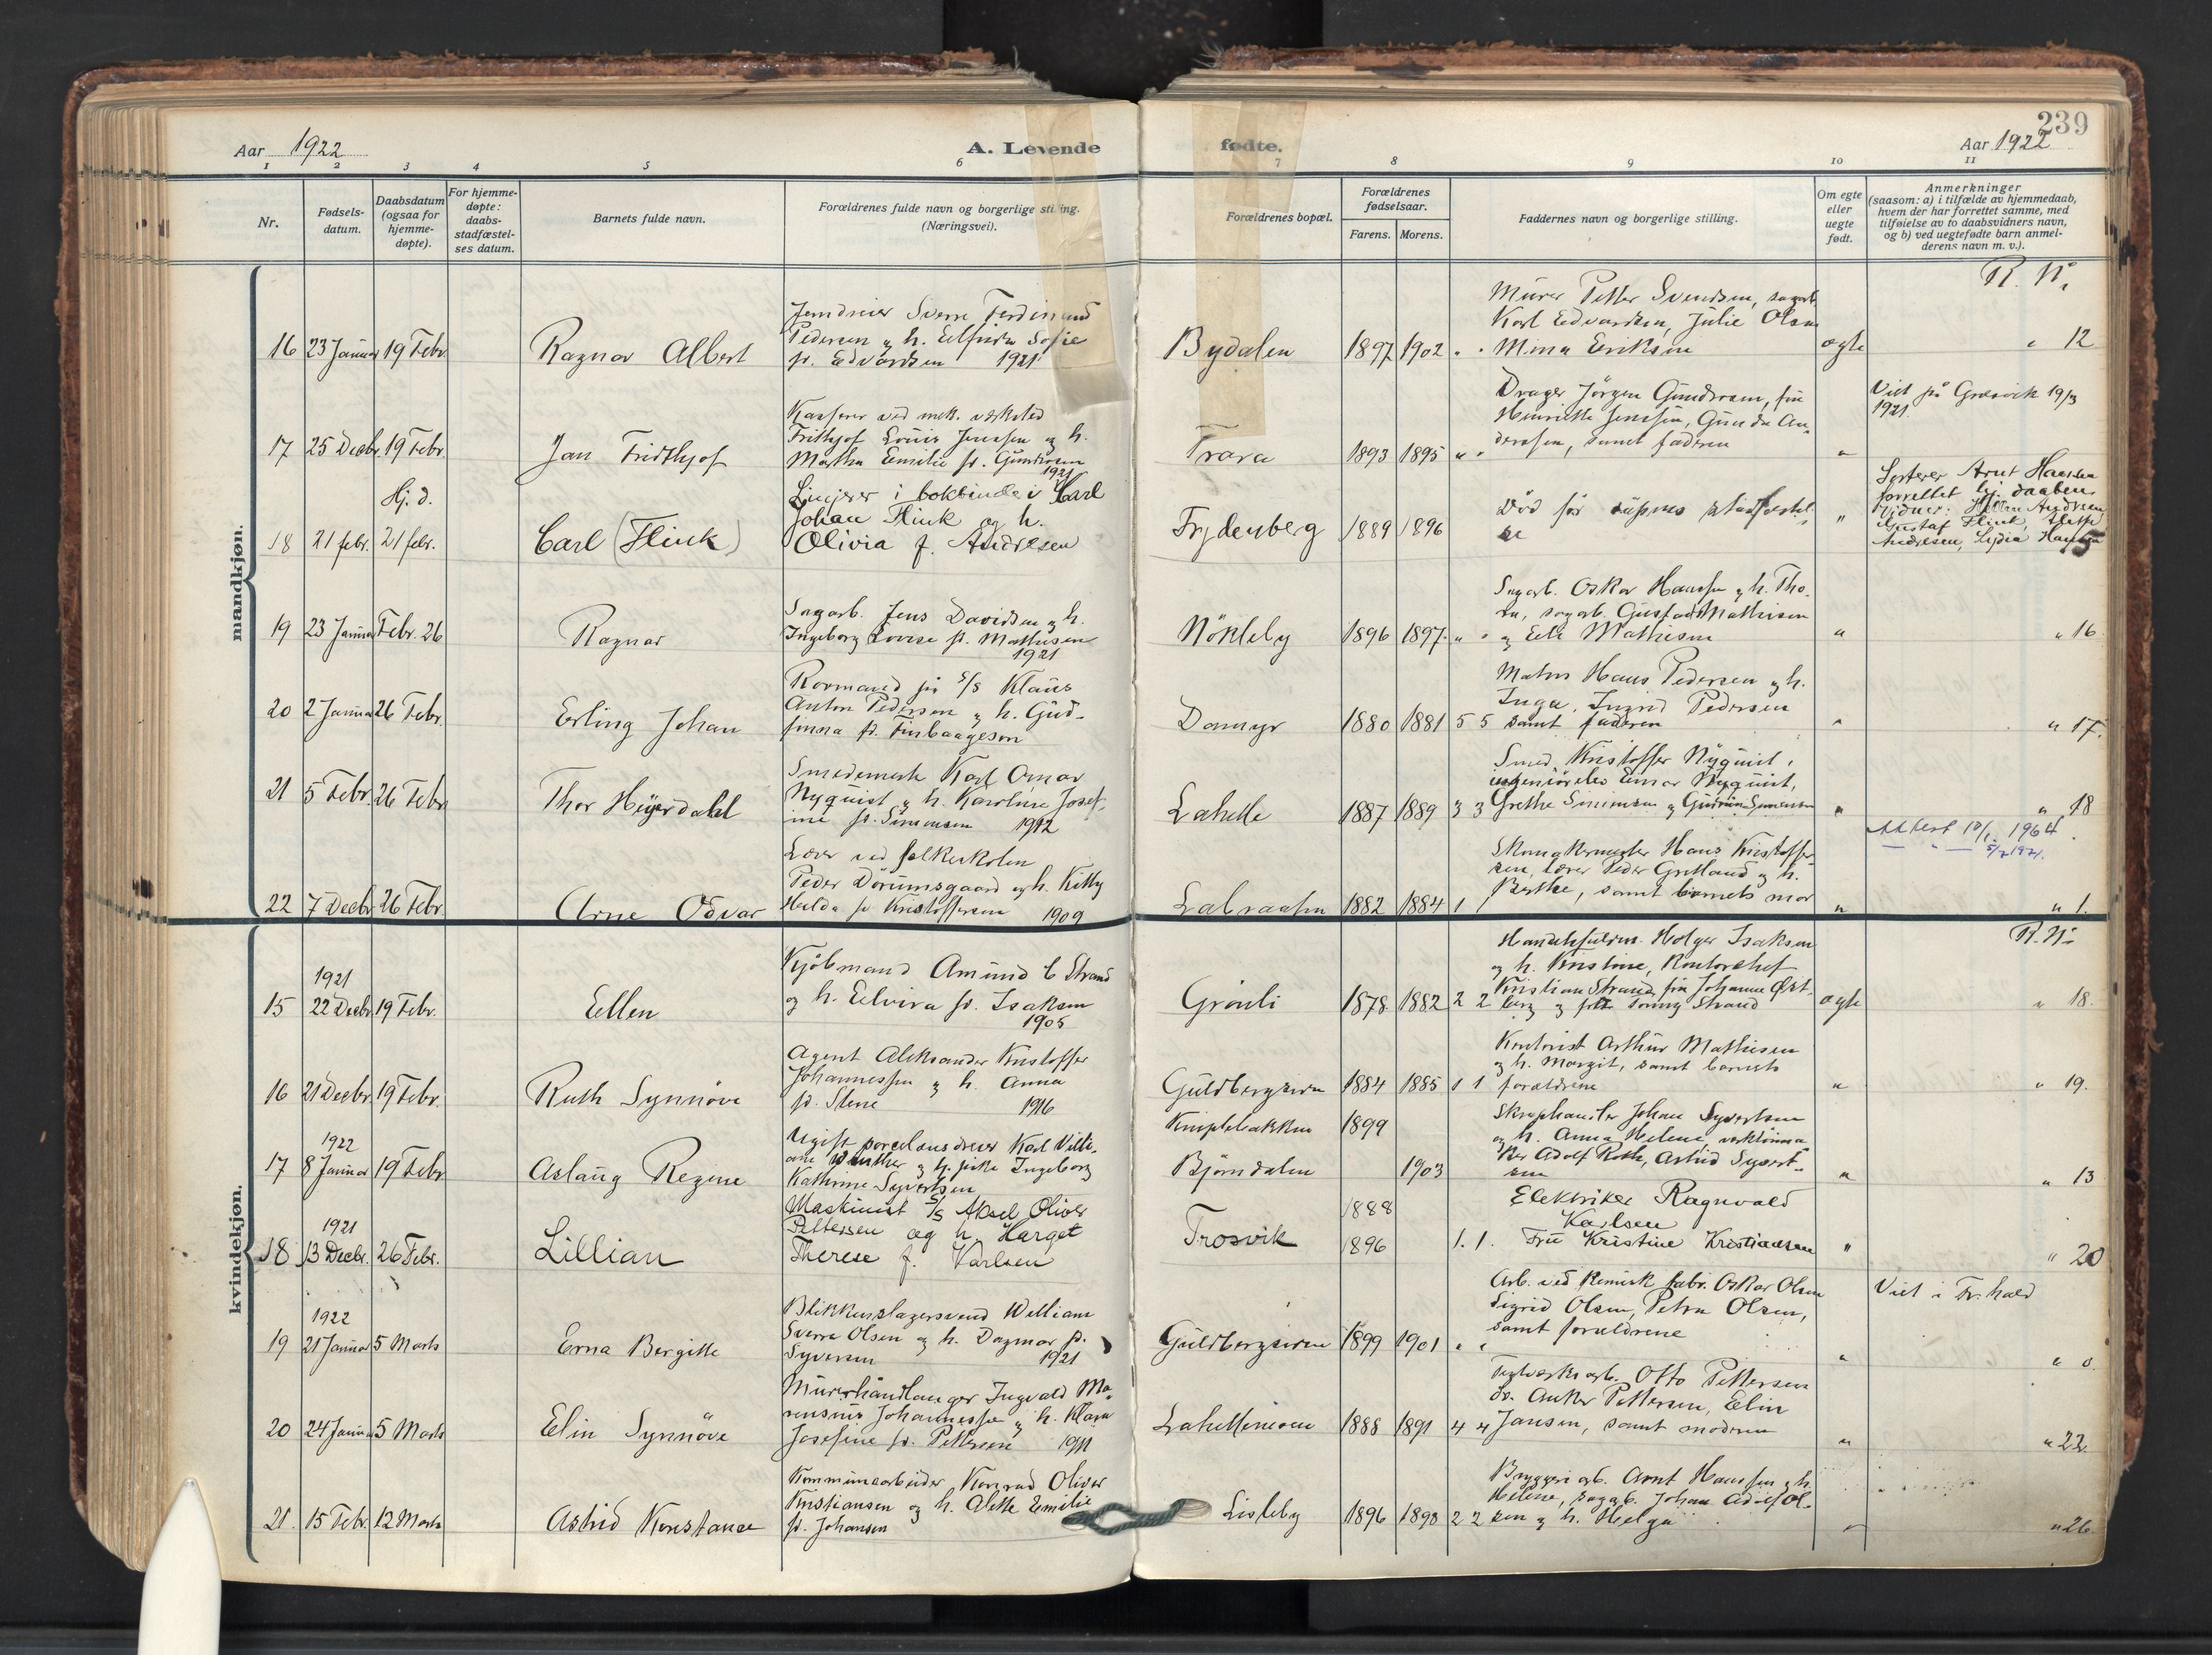 239
Aar 1922
A. Levende
fødte.
Aar 1922
1 2 3 4 5 6 7 8 9 10 11
Nr.
Fødsels-
datum.
Daabsdatum
(ogsaa for
hjemme-
døpte).
For hjemme-
døpte:
daabs-
stadfæstel-
ses datum.
Barnets fulde navn.
Forældrenes fulde navn og borgerlige stilling.
(Næringsvei).
Forældrenes bopæl.
Forældrenes
fødselsaar.
Farens. Morens.
Faddernes navn og borgerlige stilling.
Om egte
eller
uegte
født.
Anmerkninger
(saasom: a) i tilfælde av hjemmedaab,
hvem der har forrettet samme, med
tilføielse av to daabsvidners navn,
og b) ved uegtefødte barn anmel-
derens navn m. v.).
mandkjøn.
R. N.
16 23 Januar 19 Febr.
Ragnar Albert
Jerndreier Sverre Ferdinand
Pedersen & h. Elfrida Sofie
f. Edvardsen 1921
Bydalen 1897 1902 " "
Murer Petter Svendsen, sagarb.
Karl Edvardsen, Julie Olsen
Mina Eriksen
egte
" 12
17 25 Decbr. 19 Febr.
Jan Fridthjof
Kasserer ved mek. verksted
Frithjof Louis Jensen og h.
Martha Emilie f. Gundersen
1921
Trara 1893 1895 " "
Drager Jörgen Gundersen, fru
Henriette Jensen, Gunda An-
dersen, samt faderen
"
Viet på Gresvik 19/3
1921
Hj. d.
18 21 febr. 21 febr.
Carl (Flink)
Linjerer i bokbinderi Karl
Johan Flink og h.
Olivia f. Andresen
Frydenberg 1889 1896
Död før
"
forrettet hj. daaben.
Vidner:
Gustaf Flink,
Andresen, Lydia Hansen
5
19 23 Januar Febr. 26
Ragnar
Sagarb. Jens Davidsen & h.
Ingeborg Lovise f. Mathisen
1921
Nökleby 1896 1897 " "
Sagarb. Oskar Hansen & h. Tho-
ra, sagarb. Gustav Mathisen
& Mathisen
"
" 16
20 2 Januar 26 Febr.
Erling Johan
Rormand på S/S Klaus
Anton Pedersen & h. Gud-
finna f. Finbaageson
Dammyr 1880 1881 5 5
Hans Pedersen & h.
Inga, Ingrid Pedersen
samt faderen
"
" 17.
21 5 Febr 26 Febr
Thor Heyerdahl
Smedemester Karl Omar
Nyquist & h. Karoline Josef-
ine f. Simensen 1912
Lahelle 1887 1889 3 3
Smed Kristoffer Nyquist,
Einar Nyquist,
Grethe Simensen & Gudrun Simensen
"
" 18
Attest 10/1. 1964.
— " — 5/7 1971.
22 7 Decbr 26 Febr.
Arne Odvar
Lærer ved folkeskolen
Peder Dorumsgaard og h. Kitty
Hulda f. Kristoffersen 1909
Labraaten 1882 1884 1 1
Hans Kristoffer-
sen, lærer Peder & h.
Berthe, samt barnets mor
"
" 1.
kvindekjøn.
R. N.
1921
15 22 Decbr 19 Febr.
Ellen
Kjöbmand Amund C Strand
og h. Elvira f. Isaksen
1905
Grönli 1878 1882 2 2
Handelsfuldm. Holger Isaksen
og h. Kristine, Kontorchef
Kristian Strand, fru Johanne Øst-
berg & Strand
egte
" 18.
16 21 Decbr. 19 Febr.
Ruth Synnöve
Agent Aleksander Kristoffer
Johannessen & h. Anna
f. Stene 1916
Guldbergsiden 1884 1885 1 1
Kontorist Arthur Mathisen
& h. Margit, samt barnets
forældrene
"
" 19.
1922
17 8 Januar 19 Febr
Aslaug Regine
Ugift porcelænsdreier Karl Villi-
am & pike Ingeborg
Kathrine Syvertsen
Kniplebakken 1899
Björndalen 1903
Skraphandler Johan Syvertsen
og h. Anna Helene,
Adolf Roth, Astrid Syvert-
sen
"
" 13
1921
18 13 Decbr. 26 Febr.
Lillian
Maskinist S/S Aksel Oliver
Pettersen og h. Harget
Therese f. Karlsen
Trosvik 1888
1896 1. 1.
Elektriker Ragnvald
Karlsen
Fru Kristine Kristiansen
"
" 20
1922
19 21 Januar 5 Marts
Erna Bergitte
Blikkenslagersvend William
Sverre Olsen og h. Dagmar f.
Syversen 1921
Guldbergsiden 1899 1901 " "
Arb. ved kemisk fabr. Oskar Olsen
Sigrid Olsen, Petra Olsen,
samt forældrene
"
Viet i Fr.hald
" 0
20 24 Januar 5 Marts
Elin Synnöve
Murerhåndlanger Ingvald Ma-
rensius Johannessen & h. Klara
Josefine f. Pettersen 1911
Lahellemoen 1888 1891 4 4
Teglverksarb. Otto Pettersen
do. Anker Pettersen, Elin
Jansen, samt moderen
"
" 22.
21. 15 Febr. 12 Marts
Astrid Konstance
Kommunearbeider Konrad Oliver
Kristiansen og h. Alette Emilie
f. Johansen
Lisleby 1896 1898 2 2
Bryggeriarb. Arnt Hanssen & h.
Helene, sagarb. Johan Adolf Ol-
sen & h. Helga
"
" 26.